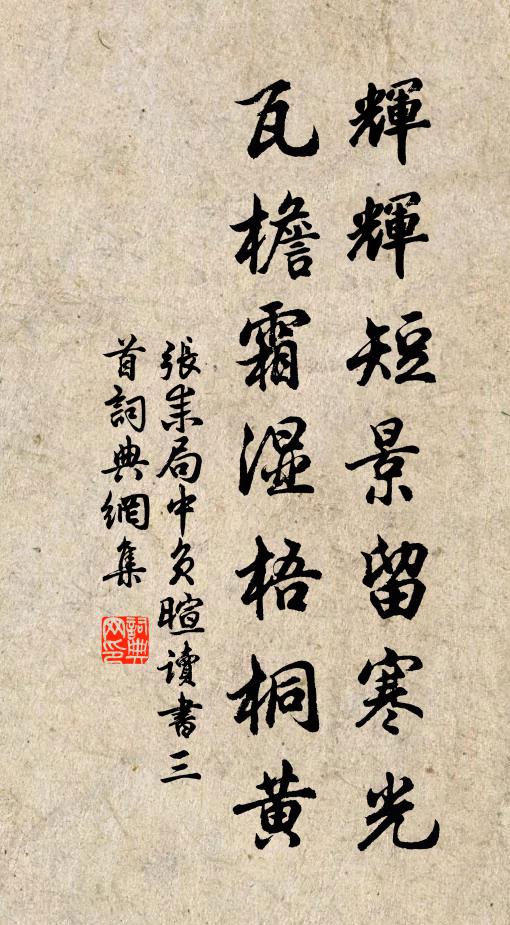 輝輝短景留寒光
瓦檐霜濕梧桐黄
張耒局中負暄讀書三
首詞典網集
詞典
网印